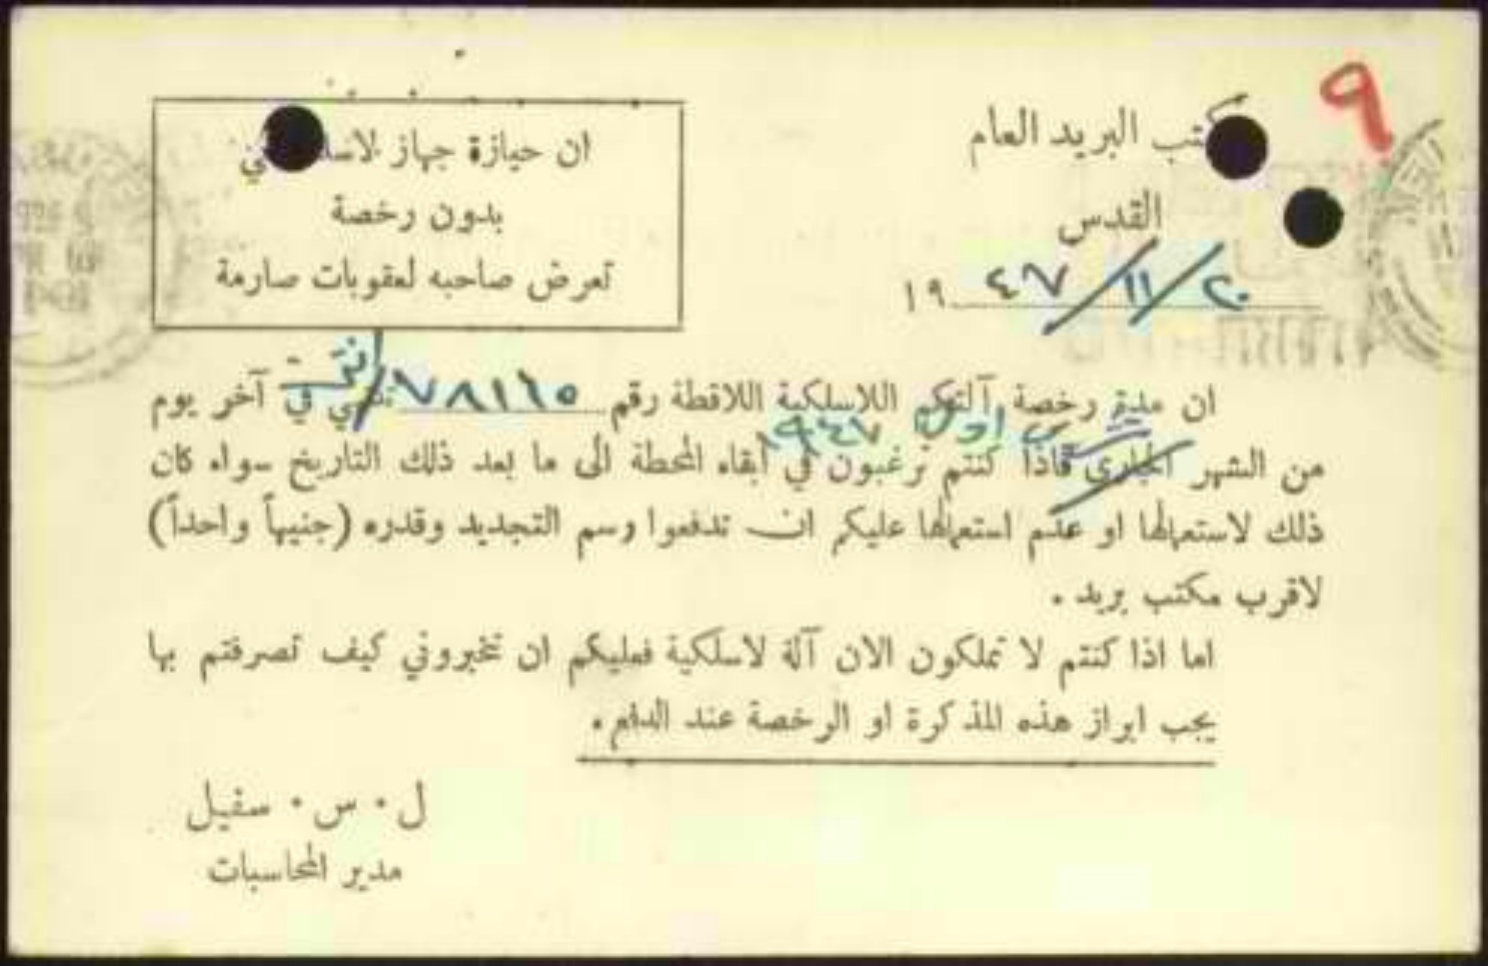 ٩
مكتب البريد العام
القدس
٢٠/١١/٤٧ ١٩
ان حيازة جهاز لاسلكي
بدون رخصة
تعرض صاحبه لعقوبات صارمة
ان مدة رخصة آلتكم اللاسلكية اللاقطة رقم ٧٨١١٥ انتهت في آخر يوم
من الشهر الجاري ١٩٤٧ فاذا كنتم ترغبون في ابقاء المحطة الى ما بعد ذلك التاريخ سواء كان
ذلك لاستعمالها او عدم استعمالها عليكم ان تدفعوا رسم التجديد وقدره (جنيهاً واحداً)
لاقرب مكتب بريد .
اما اذا كنتم لا تملكون الان آلة لاسلكية فعليكم ان تخبروني كيف تصرفتم بها
يجب ابراز هذه المذكرة او الرخصة عند الدفع .
ل . س . سفيل
مدير المحاسبات